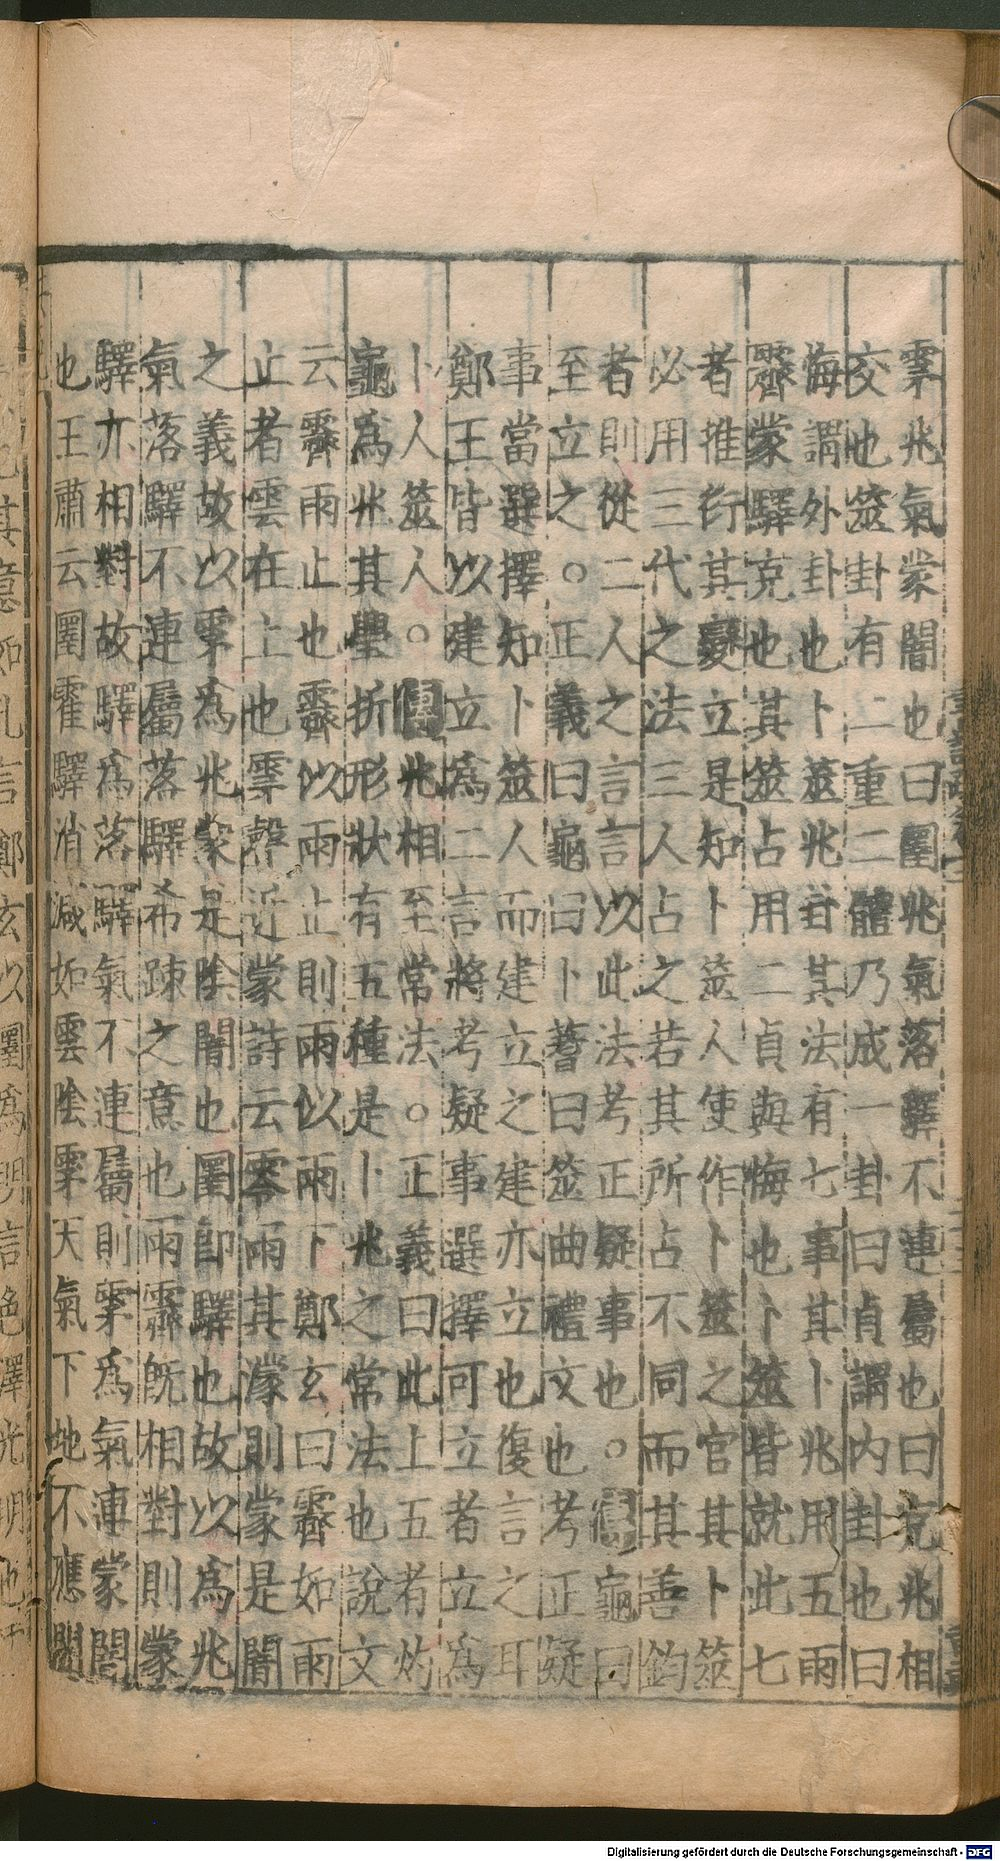 雺兆氣蒙闇也曰圛兆氣落驛不連屬也曰克兆相
交也筮卦有二重二體乃成一卦曰貞謂内卦也曰
悔謂外卦也卜筮兆卦其法有七事其卜兆用五雨
霽蒙驛克也其筮占用二貞與悔也卜筮皆就此七
者推衍其變立是知卜筮人使作卜筮之官其卜筮
必用三代之法三人占之若其所占不同而其善鈞
者則從二人之言言以此法考正疑事也○傳龜曰
至立之○正義曰龜曰卜蓍曰筮曲禮文也考正疑
事當選擇知卜筮人而建立之建亦立也復言之耳
鄭王皆以建立爲二言將考疑事選擇可立者立爲
卜人筮人○傳兆相至常法○正義曰此上五者灼
龜爲兆其舋折形狀有五種是卜兆之常法也說文
云霽雨止也霽似雨止則雨似雨下鄭玄曰霽如雨
止者雲在上也雺聲近蒙詩云零雨其濛則蒙是闇
之義故以雺爲兆蒙是陰闇也圛即驛也故以爲兆
氣落驛不連屬落驛希踈之意也雨霽旣相對則蒙
驛亦相對故驛爲落驛氣不連屬則雺爲氣連蒙闇
也王肅云圛霍驛消減如雲陰雺天氣下地不應闇
Digitalisierung gefördert durch die Deutsche Forschungsgemeinschaft - DFG